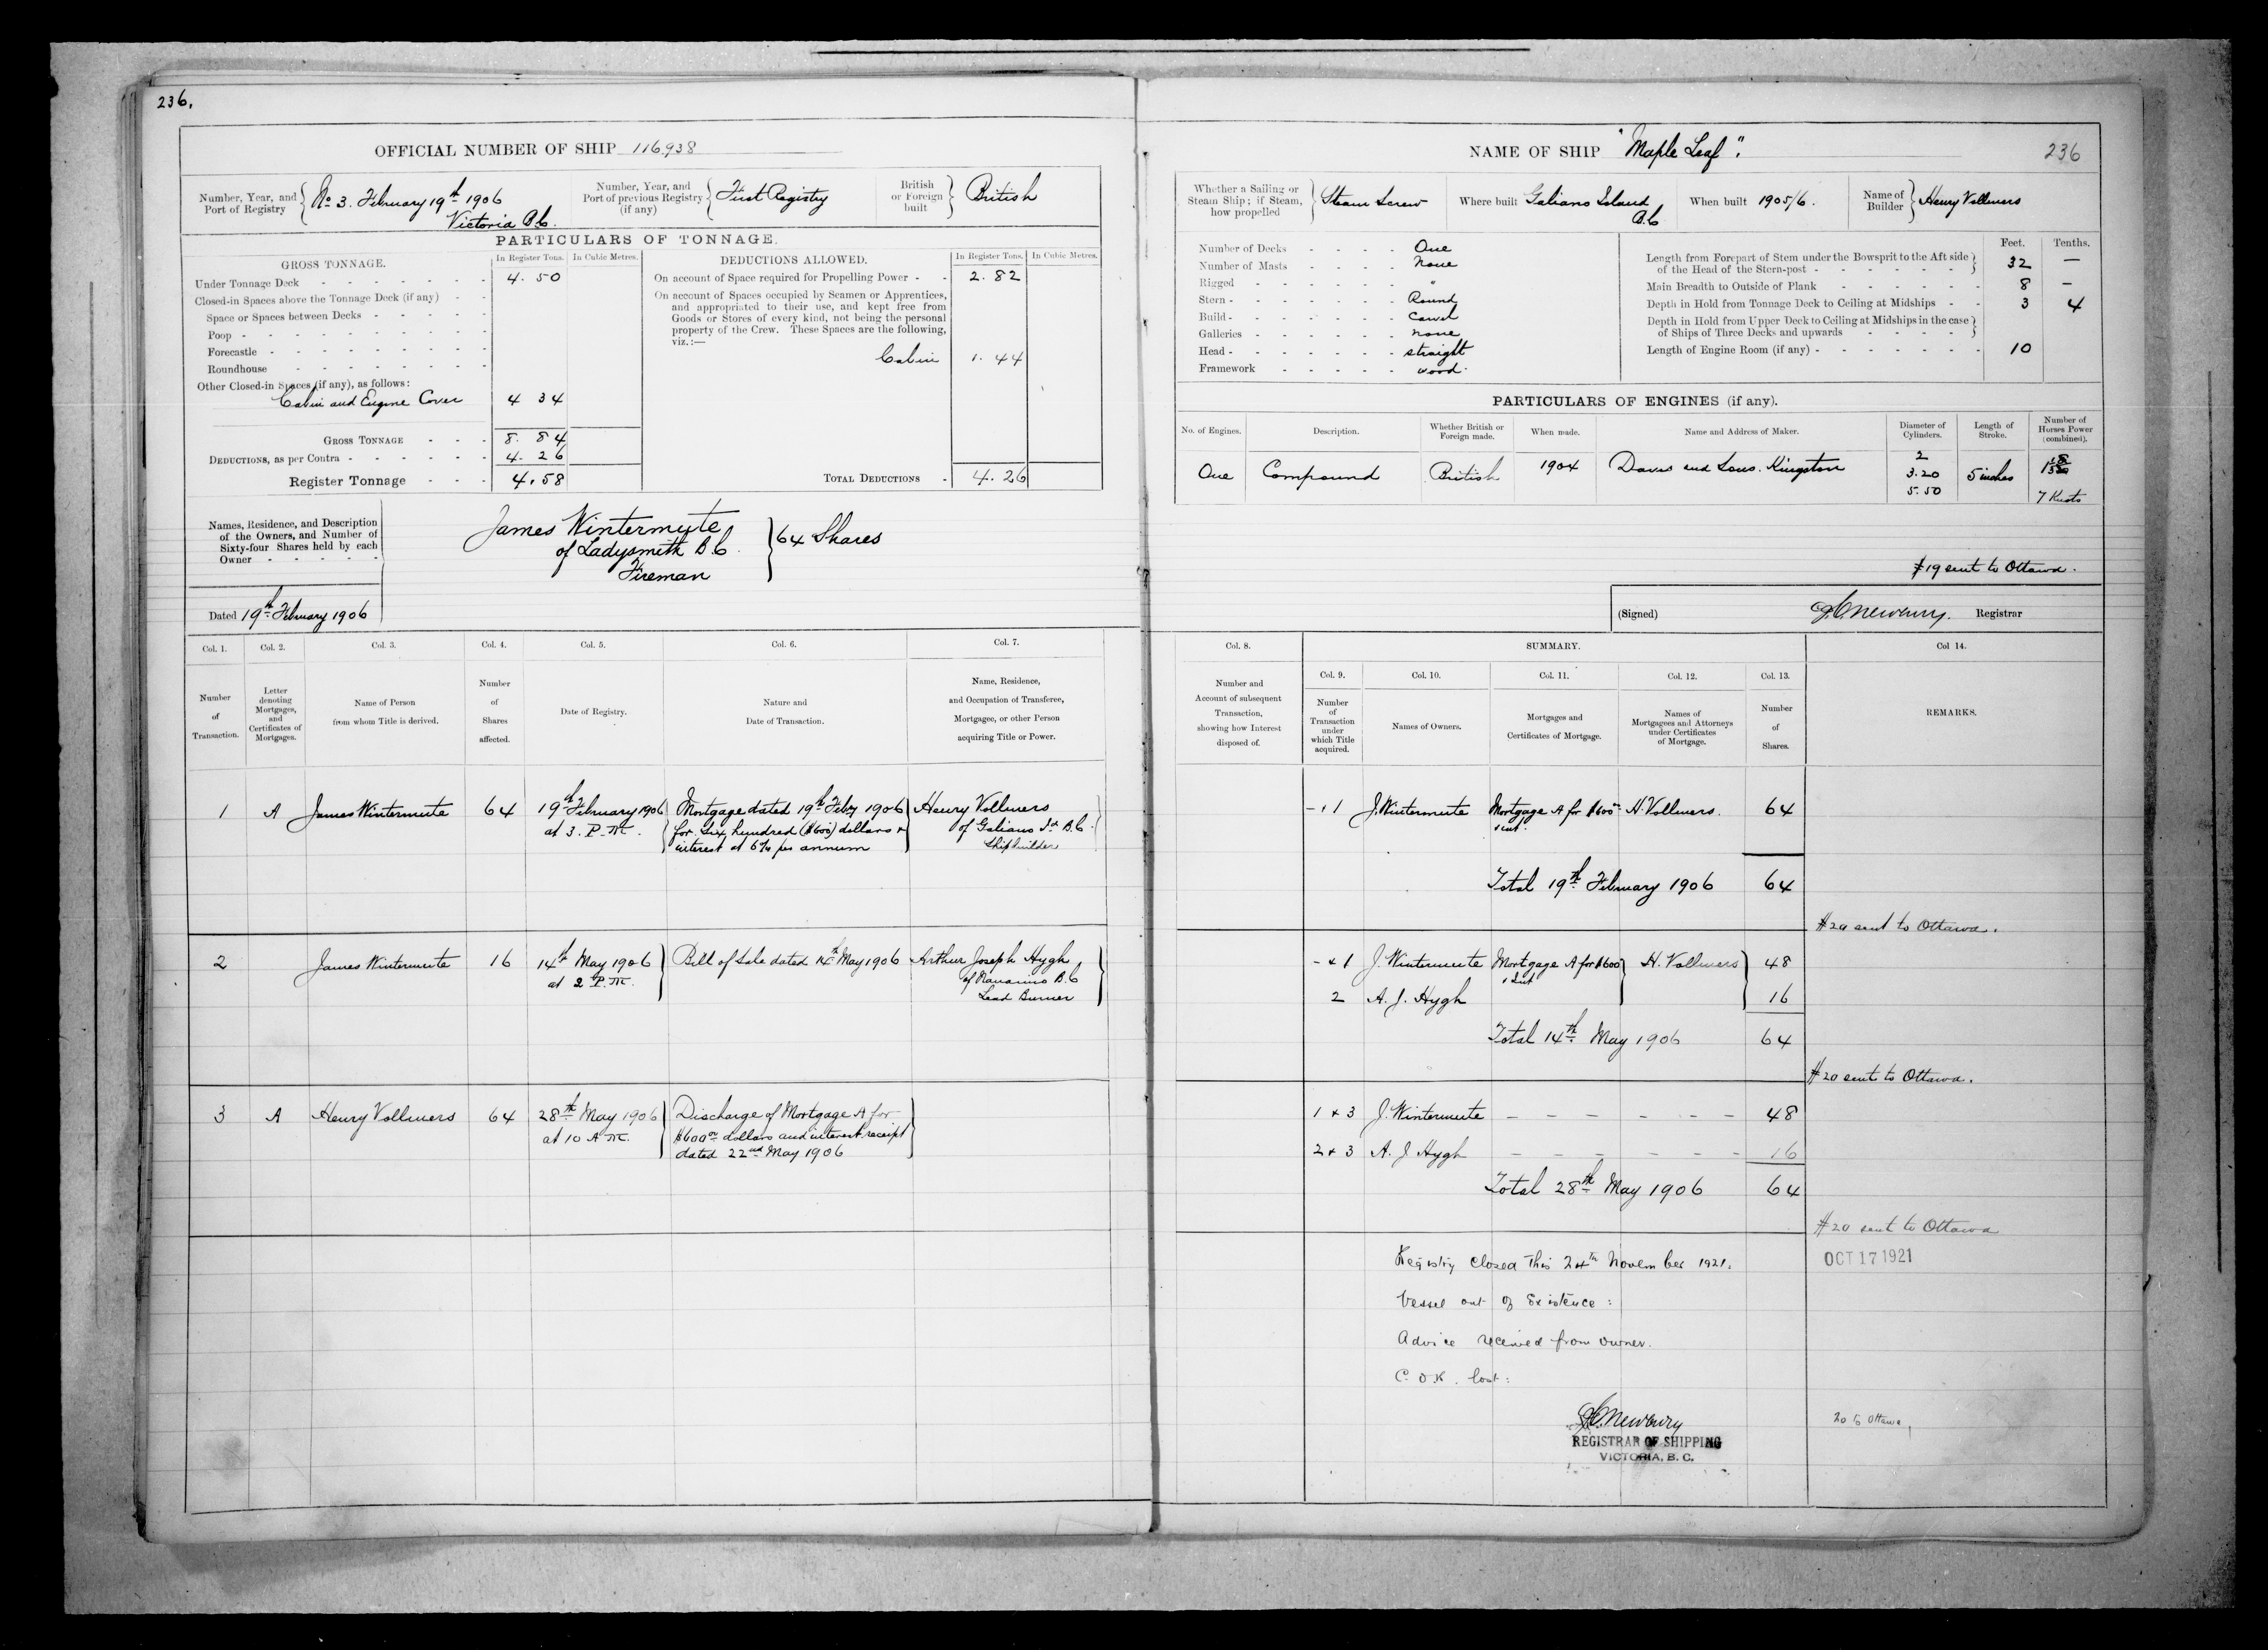 236.
OFFICIAL NUMBER OF SHIP 116938
Number, Year, and Port of Registry No 3. February 19th 1906 Victoria B.C.
Number, Year, and Port of previous Registry (if any) First Registry
British or Foreign built British
PARTICULARS OF TONNAGE.
GROSS TONNAGE. In Register Tons. In Cubic Metres.
Under Tonnage Deck - - - - - - 4. 50
Closed-in Spaces above the Tonnage Deck (if any) - -
Space or Spaces between Decks - - - - -
Poop - - - - - - - - -
Forecastle - - - - - - - -
Roundhouse - - - - - - -
Other Closed-in Spaces (if any), as follows:
Cabin and Engine Cover 4 34
GROSS TONNAGE - - - 8. 84
DEDUCTIONS, as per Contra - - - - - - 4. 26
Register Tonnage - - - 4.58
DEDUCTIONS ALLOWED. In Register Tons. In Cubic Metres.
On account of Space required for Propelling Power - - 2. 82
On account of Spaces occupied by Seamen or Apprentices,
and appropriated to their use, and kept free from
Goods or Stores of every kind, not being the personal
property of the Crew. These Spaces are the following,
viz.:—
Cabin 1. 44
TOTAL DEDUCTIONS - 4. 26
Names, Residence, and Description
of the Owners, and Number of
Sixty-four Shares held by each
Owner - - - - -
James Wintermute
of Ladysmith B.C.
Fireman
64 Shares
Dated 19th February 1906
Col. 1. Col. 2. Col. 3. Col. 4. Col. 5. Col. 6. Col. 7.
Number of Transaction.
Letter denoting Mortgages, and Certificates of Mortgages.
Name of Person from whom Title is derived.
Number of Shares affected.
Date of Registry.
Nature and Date of Transaction.
Name, Residence, and Occupation of Transferee, Mortgagee, or other Person acquiring Title or Power.
1 A James Wintermute 64 19th February 1906 Mortgage dated 19th Feby 1906 Henry Vollmers
at 3. P.M. for six hundred ($600) dollars & of Galiano Isd B.C.
interest at 6% per annum Shipbuilder
2 James Wintermute 16 14th May 1906 Bill of Sale dated 14th May 1906 Arthur Joseph Hygh
at 2 P.M. of Nanaimo B.C
Lead Burner
3 A Henry Vollmers 64 28th May 1906 Discharge of Mortgage A for
at 10 A.M. $600 00 dollars and interest receipt
dated 22nd May 1906
NAME OF SHIP "Maple Leaf". 236
Whether a Sailing or Steam Ship; if Steam, how propelled Steam Screw
Where built Galiano Island B.C
When built 1905/6.
Name of Builder Henry Vollmers
Number of Decks - - - - One
Number of Masts - - - - None
Rigged - - - - - - "
Stern - - - - - - - Round
Build - - - - - - - Carvel
Galleries - - - - - - none
Head - - - - - - - straight
Framework - - - - - wood.
Feet. Tenths.
Length from Forepart of Stem under the Bowsprit to the Aft side
of the Head of the Stern-post - - - - - - - 32 —
Main Breadth to Outside of Plank - - - - - - 8 —
Depth in Hold from Tonnage Deck to Ceiling at Midships - - 3 4
Depth in Hold from Upper Deck to Ceiling at Midships in the case
of Ships of Three Decks and upwards - - - -
Length of Engine Room (if any) - - - - - - - 10
PARTICULARS OF ENGINES (if any).
No. of Engines. Description. Whether British or Foreign made. When made. Name and Address of Maker. Diameter of Cylinders. Length of Stroke. Number of Horses Power (combined).
One Compound British 1904 Davis and Sons. Kingston 2 3.20 5.50 5 inches
7 Knots
#19 sent to Ottawa.
(Signed) Newbury. Registrar
Col. 8. SUMMARY. Col 14.
Col. 9. Col. 10. Col. 11. Col. 12. Col. 13.
Number and Account of subsequent Transaction, showing how Interest disposed of.
Number of Transaction under which Title acquired.
Names of Owners.
Mortgages and Certificates of Mortgage.
Names of Mortgagees and Attorneys under Certificates of Mortgage.
Number of Shares.
REMARKS.
1 J. Wintermute Mortgage A for $600 00 H. Vollmers. 64
Total 19th February 1906 64
#20 sent to Ottawa.
- & 1 J. Wintermute Mortgage A for $600 H. Vollmers 48
& Int
2 A. J. Hygh 16
Total 14th May 1906 64
#20 sent to Ottawa.
1 & 3 J. Wintermute - - - - - - 48
2 & 3 A. J Hygh - - - - - - 16
Total 28th May 1906 64
#20 sent to Ottawa
OCT 17 1921
Registry closed this 24th November 1921.
Vessel out of Existence:
Advice received from owner.
C. O. R. lost:
Newbury
REGISTRAR OF SHIPPING
VICTORIA, B. C.
20 to Ottawa.